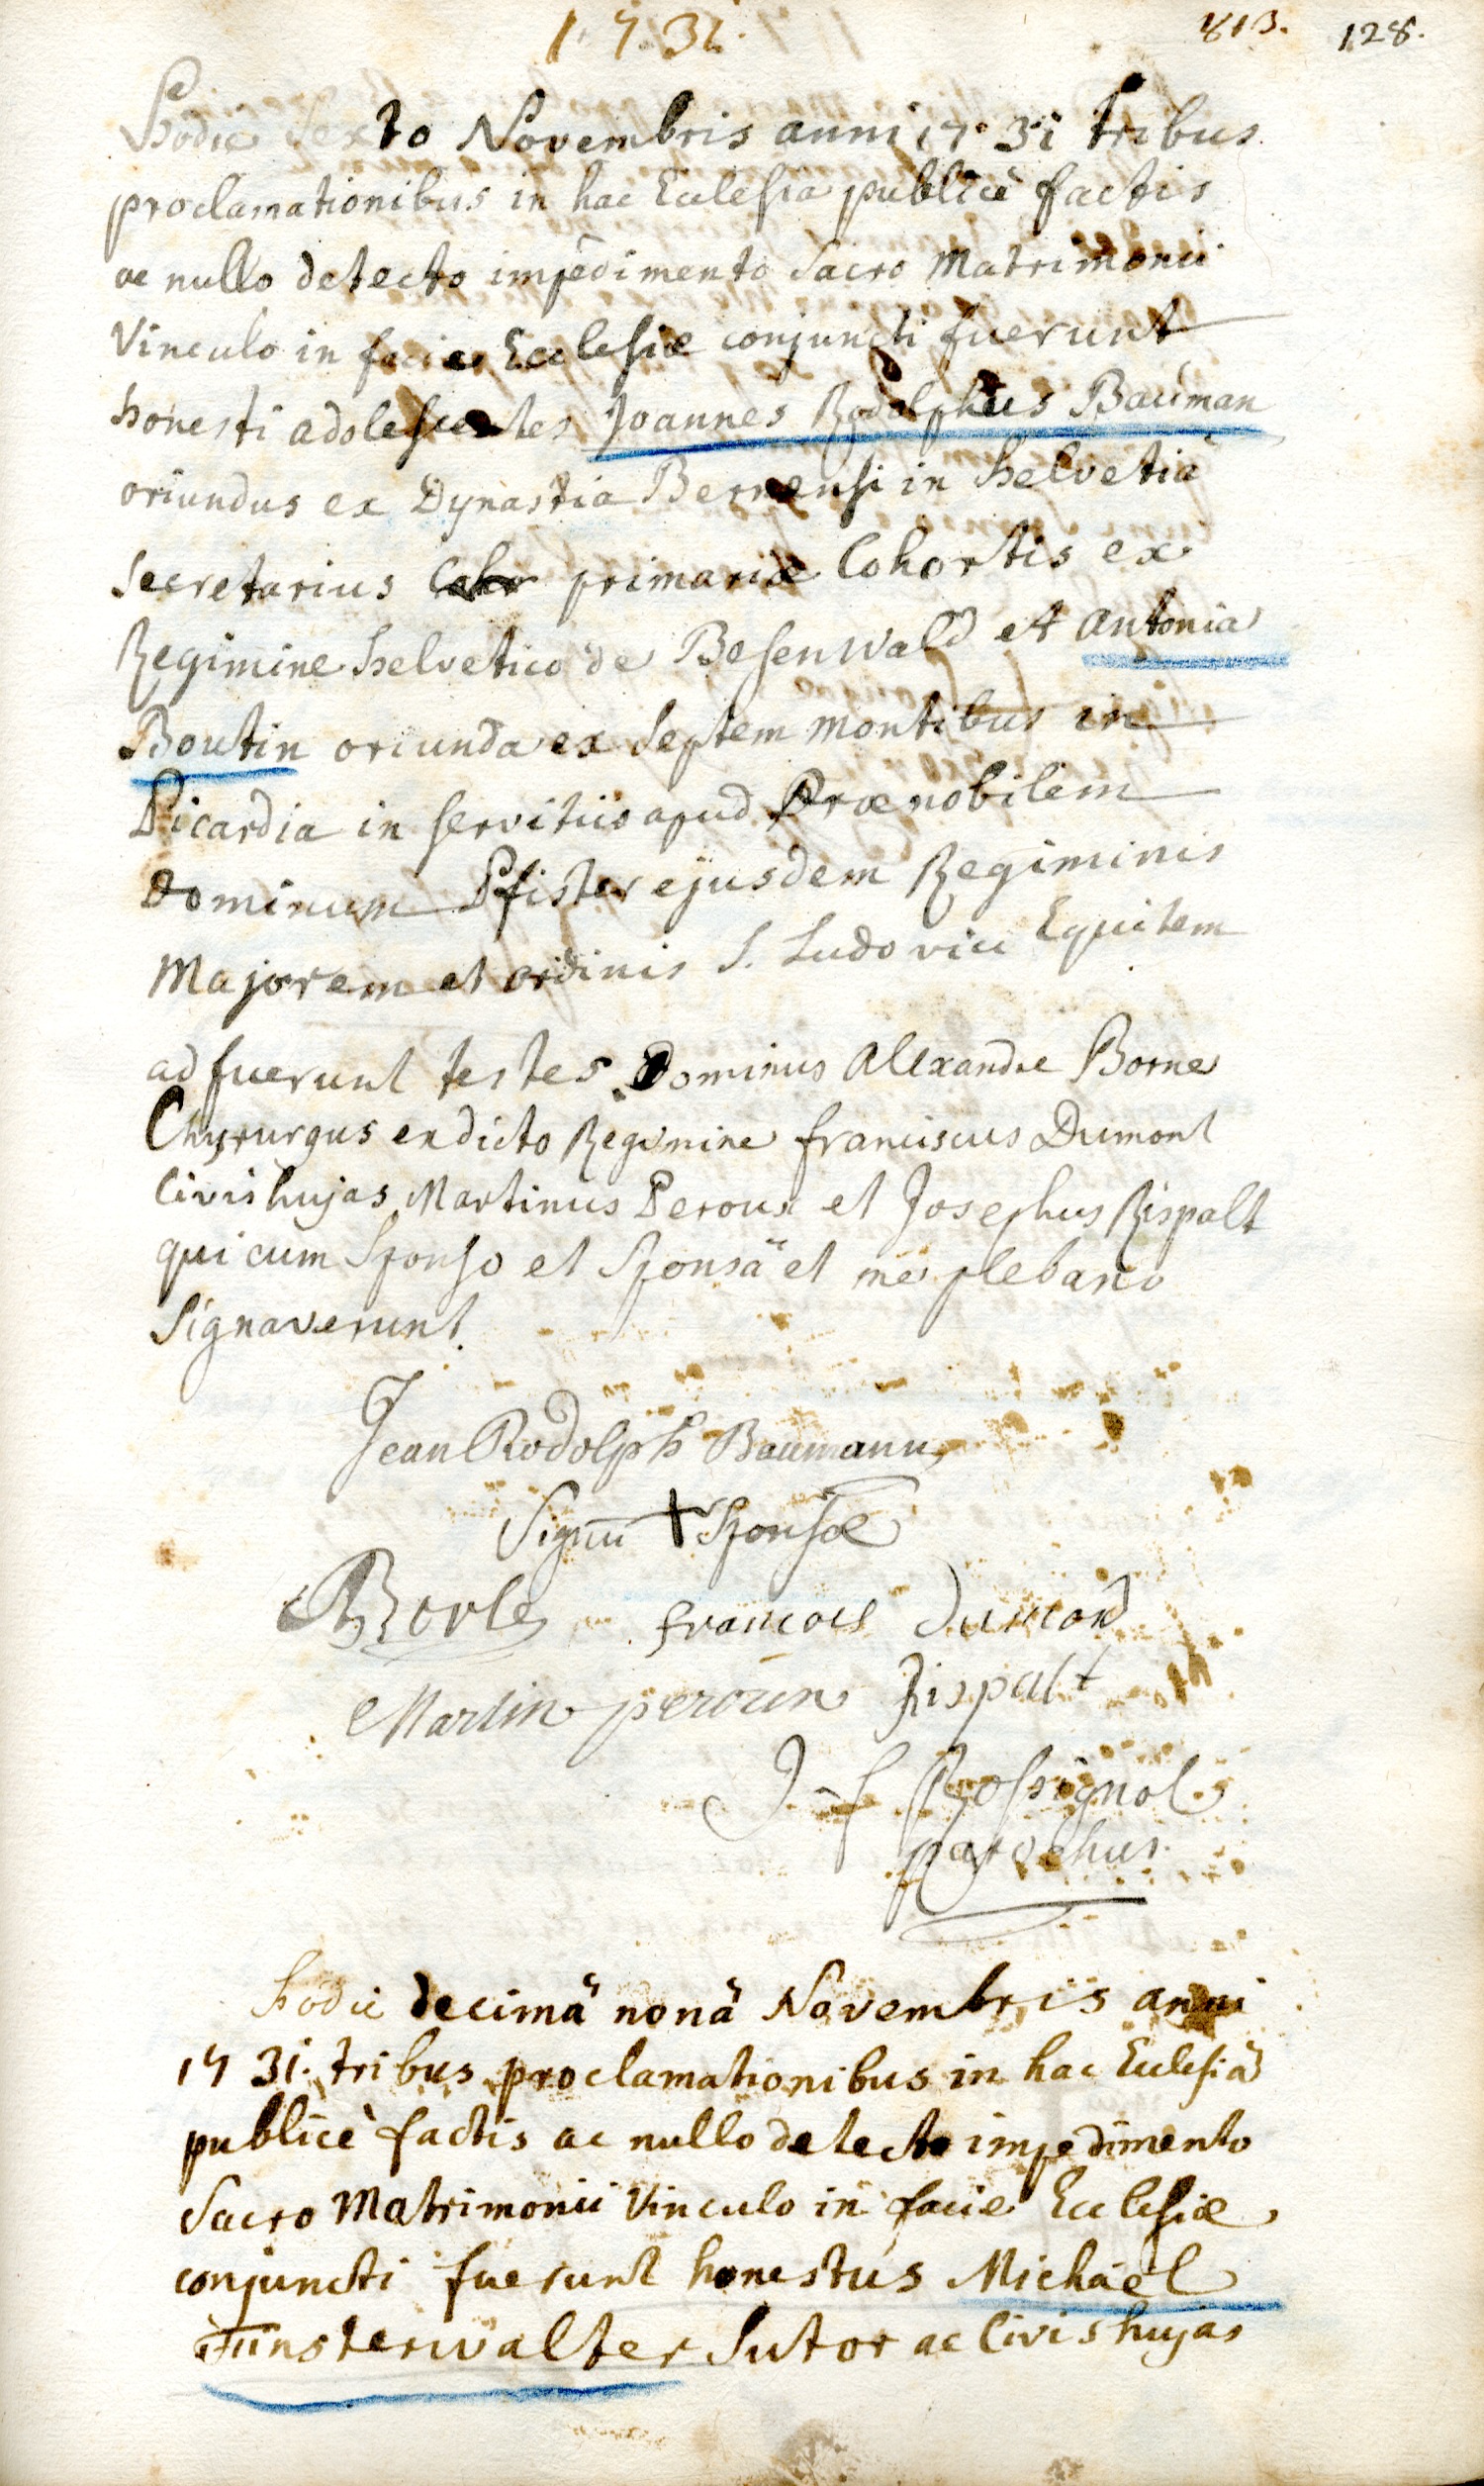 1731.
813. 128.
Hodie sexto Novembris anni 1731 tribus
proclamationibus in hac Ecclesia publicè factis
ac nullo detecto impedimento Sacro Matrimonii
Vinculo in facie Ecclesiæ conjuncti fuerunt
honesti adolescentes Joannes Rodolphus Bauman
oriundus ex Dynastia Bernensi in helvetiâ
Secretarius primariæ Cohortis ex
Regimine helvetico de Besenwald et antonia
Boutin oriunda ex Septem montibus in
Picardia in servitiis apud Prænobilem
Dominum Pfister ejusdem Regiminis
Majorem et ordinis S. Ludovici Equitem
adfuerunt testes Dominus Alexandre Borne
Chyrurgus en dicto Regimine franciscus Dumont
Civis hujas Martinus Peroux et Josephus Rispalt
qui cum Sponso et Sponsâ et me plebano
Signaverunt.
Jean Rodolph Baumann
Signū + Sponsæ
Borle francois dumond
Martin peroun Rispalt
J-f Rossignol
parochus.
Hodie decimâ nonâ Novembris anni
1731. tribus proclamationibus in hac Ecclesiâ
publicè factis ac nullo detecto impedimento
Sacro Matrimonii Vinculo in facie Ecclesiæ
conjuncti fuerunt honestus Michaël
finsterwalter Sutor ac Civis hujas